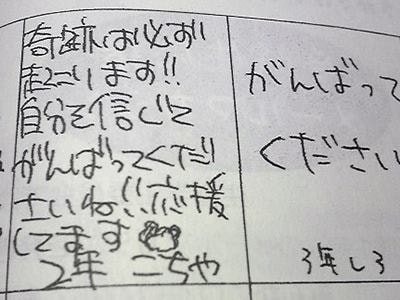 奇跡は必ず
起こります!!
自分を信じて
がんばってくだ
さいね!!応援
してます
2年 こちゃ
がんばって
ください
3年 しろ